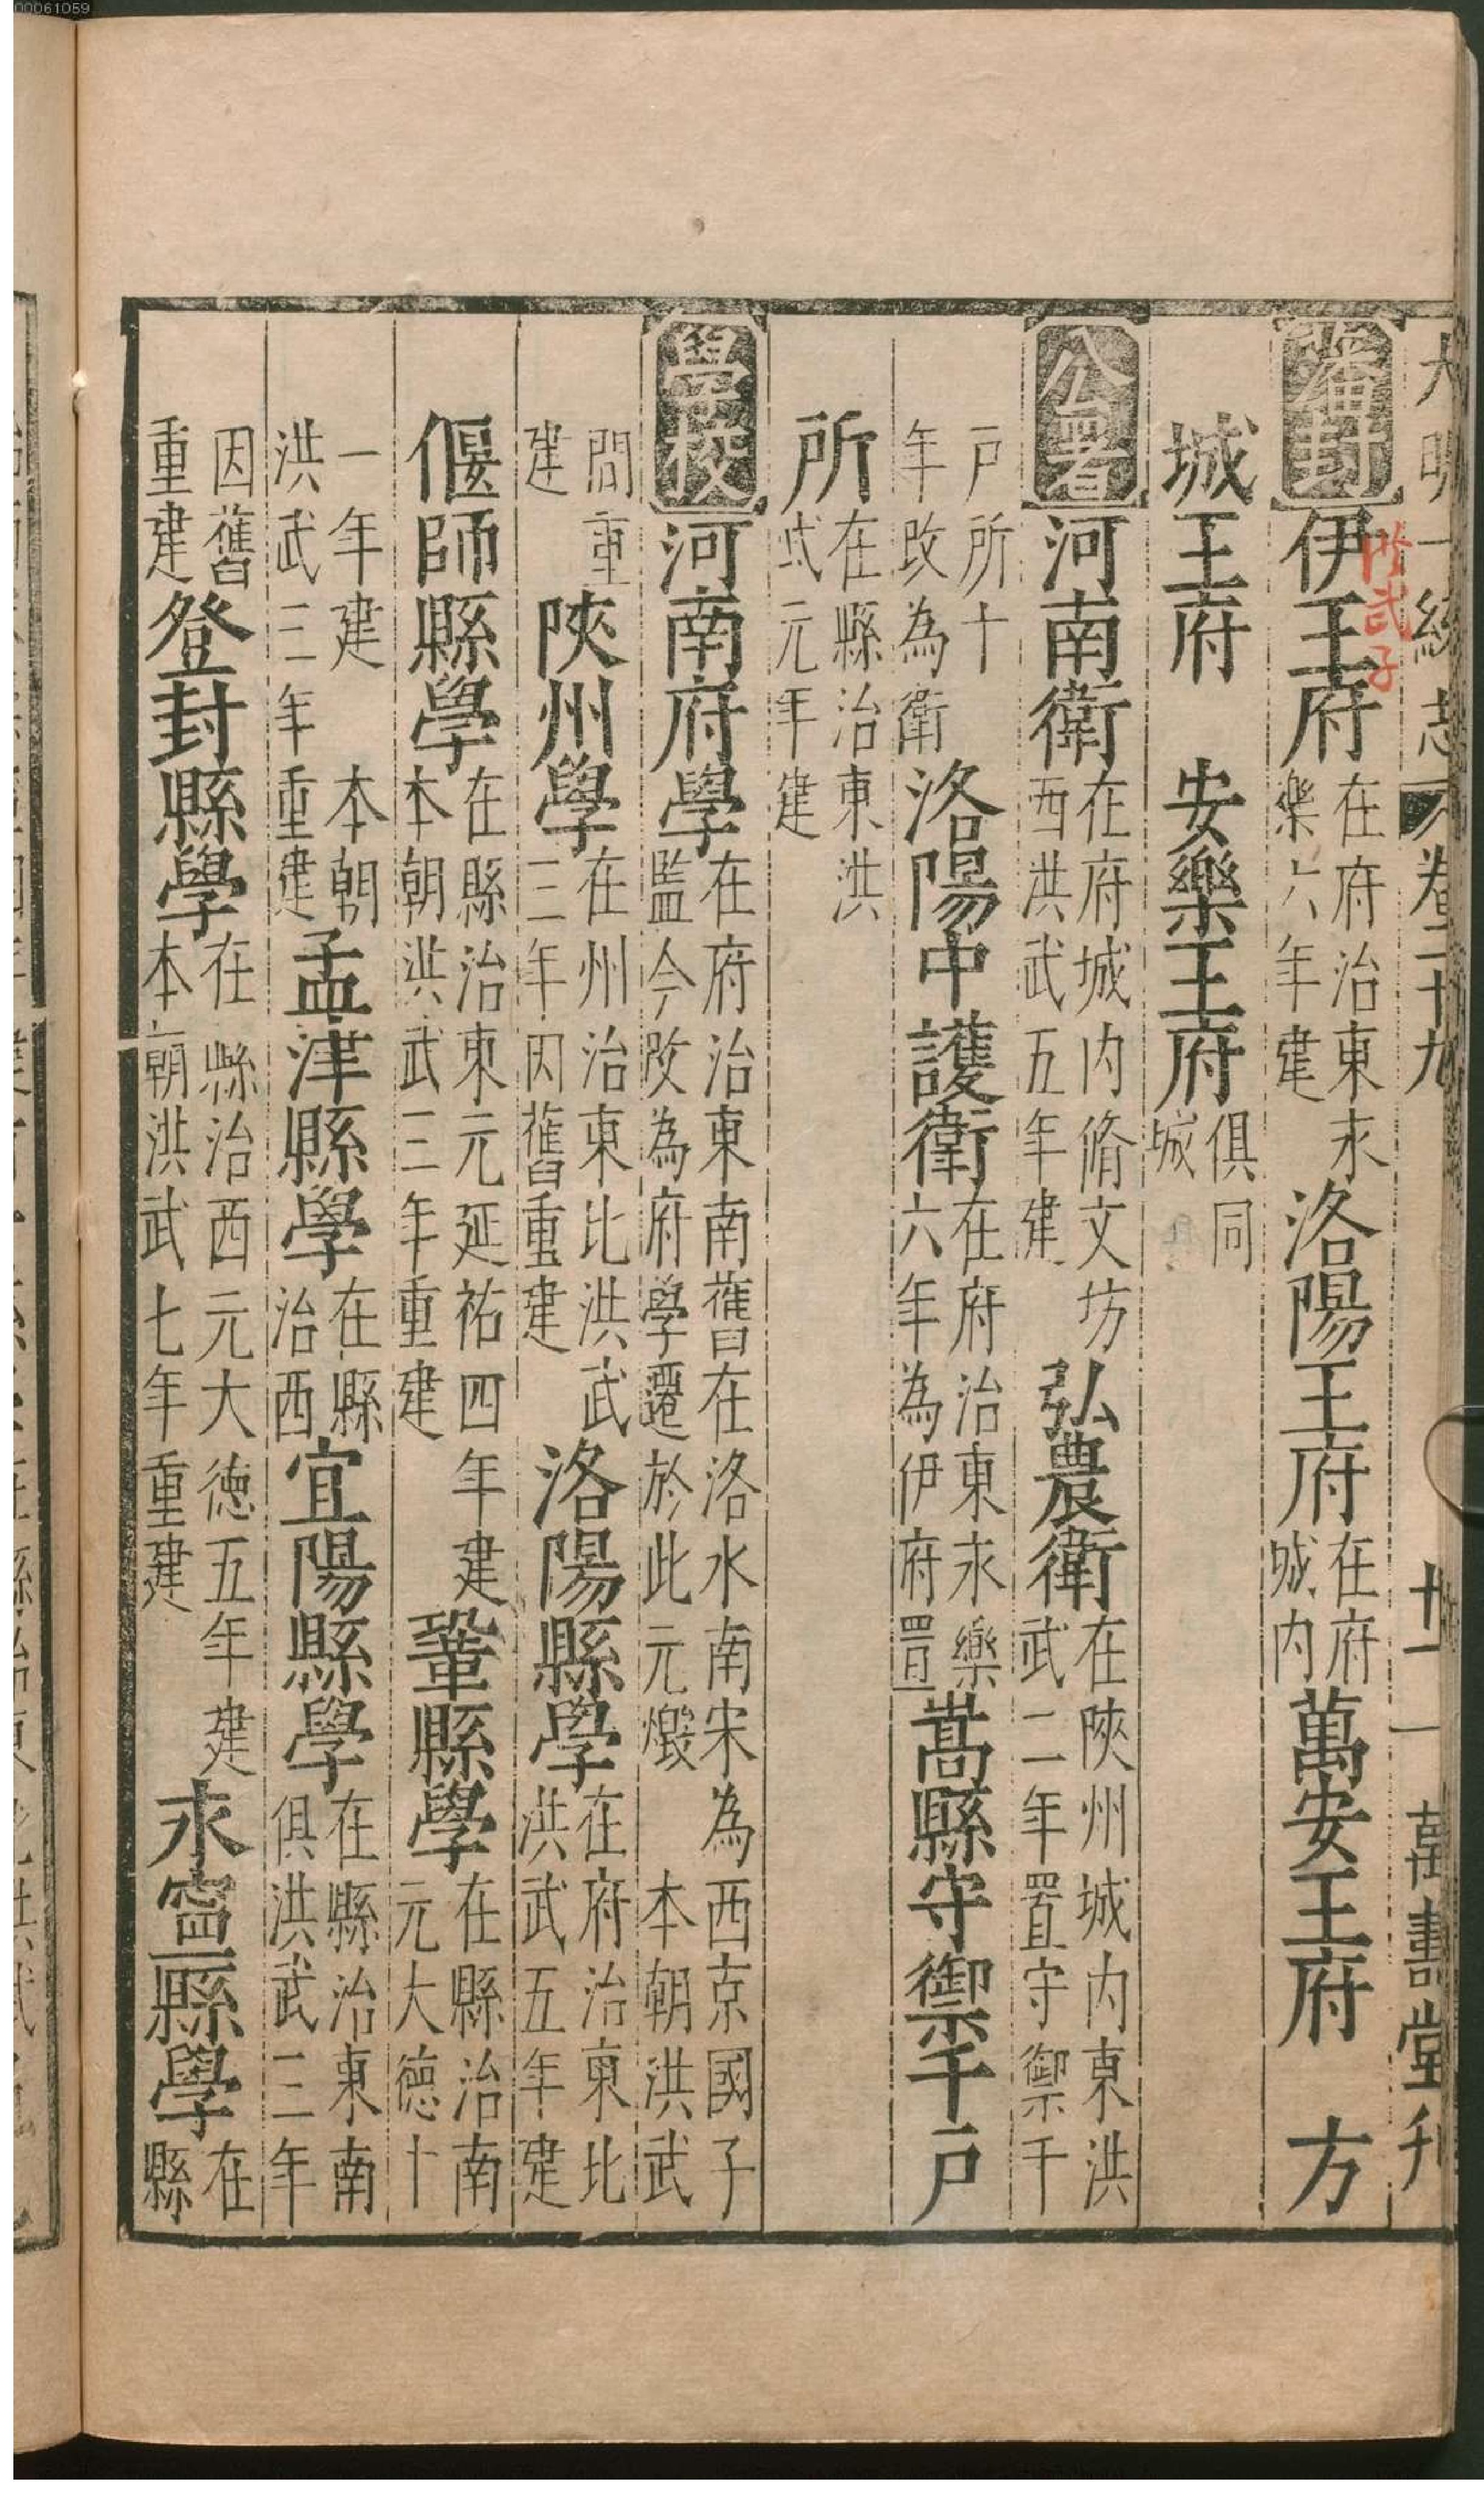 00061059
大明一統志 卷二十九 廿一 萬壽堂刋
藩封 伊王府 在府治東永樂六年建 洛陽王府 在府城内 萬安王府 方
城王府 安樂王府 俱同城
公署 河南衛 在府城内脩文坊西洪武五年建 弘農衛 在陜州城内東洪武二年置守禦千
戸所十年改為衛 洛陽中護衛 在府治東永樂六年為伊府置 嵩縣守禦千戸
所 在縣治東洪武元年建
學校 河南府學 在府治東南舊在洛水南宋為西京國子監今改為府學遷於此元燬 本朝洪武
間重建 陜州學 在州治東北洪武三年因舊重建 洛陽縣學 在府治東北洪武五年建
偃師縣學 在縣治東元延祐四年建本朝洪武三年重建 鞏縣學 在縣治南元大德十
一年建 本朝洪武三年重建 孟津縣學 在縣治西 宜陽縣學 在縣治東南俱洪武三年
因舊重建 登封縣學 在縣治西元大德五年建本朝洪武七年重建 永寧縣學 在縣